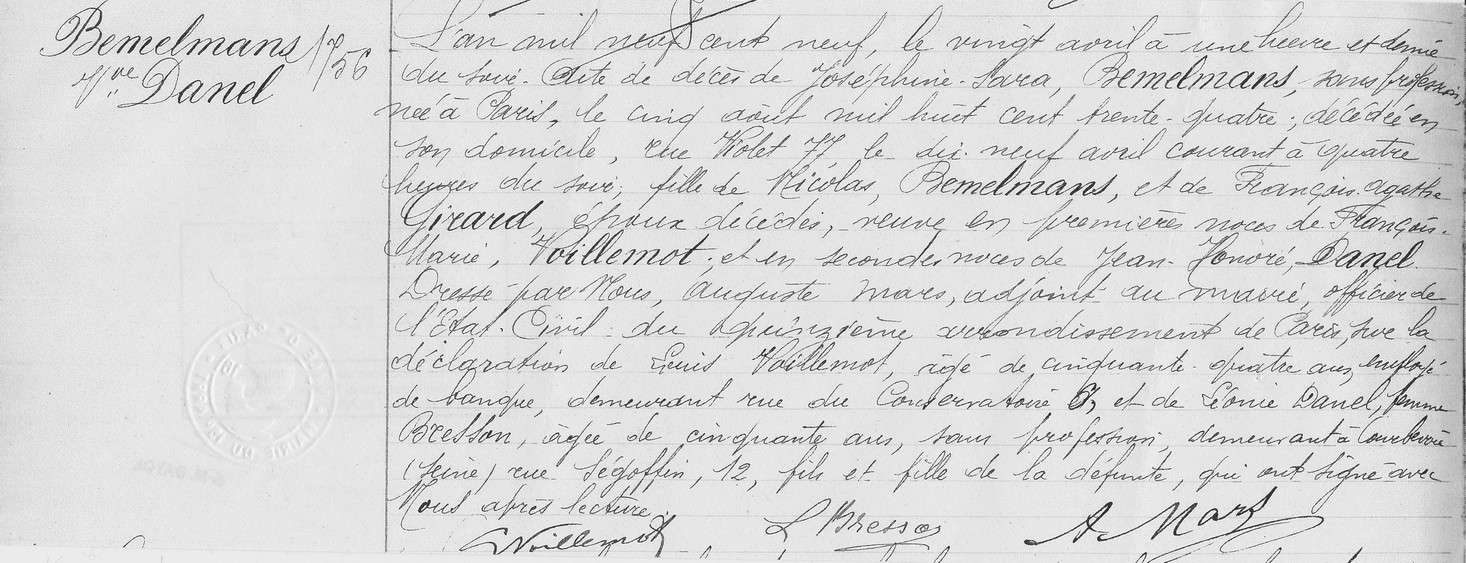 Bemelmans
Vve Danel
1756
L'an mil neuf cent neuf, le vingt avril à une heure et demie
du soir. Acte de décès de Joséphine-Sara, Bemelmans, sans profession,
née à Paris, le cinq août mil huit cent trente-quatre; décédée en
son domicile, rue Violet 77 le dix-neuf avril courant à quatre
heures du soir; fille de Nicolas, Bemelmans, et de François-Agathe
Girard, époux décédés, veuve en premières noces de François-
Marie, Voillemot; et en secondes noces de Jean-Honoré, Danel.
Dressé par Nous, Auguste Mars, adjoint au maire, officier de
l'Etat-Civil du quinzième arrondissement de Paris, sur la
déclaration de Louis Voillemot, âgé de cinquante-quatre ans, employé
de banque, demeurant rue du Conservatoire, et de Léonie Danel, femme
Bresson, âgée de cinquante ans, sans profession, demeurant à Courbevoie
(Seine) rue Ségoffin, 12, fils et fille de la défunte, qui ont signé avec
Nous après lecture.
Voillemot L Bresson A Mars